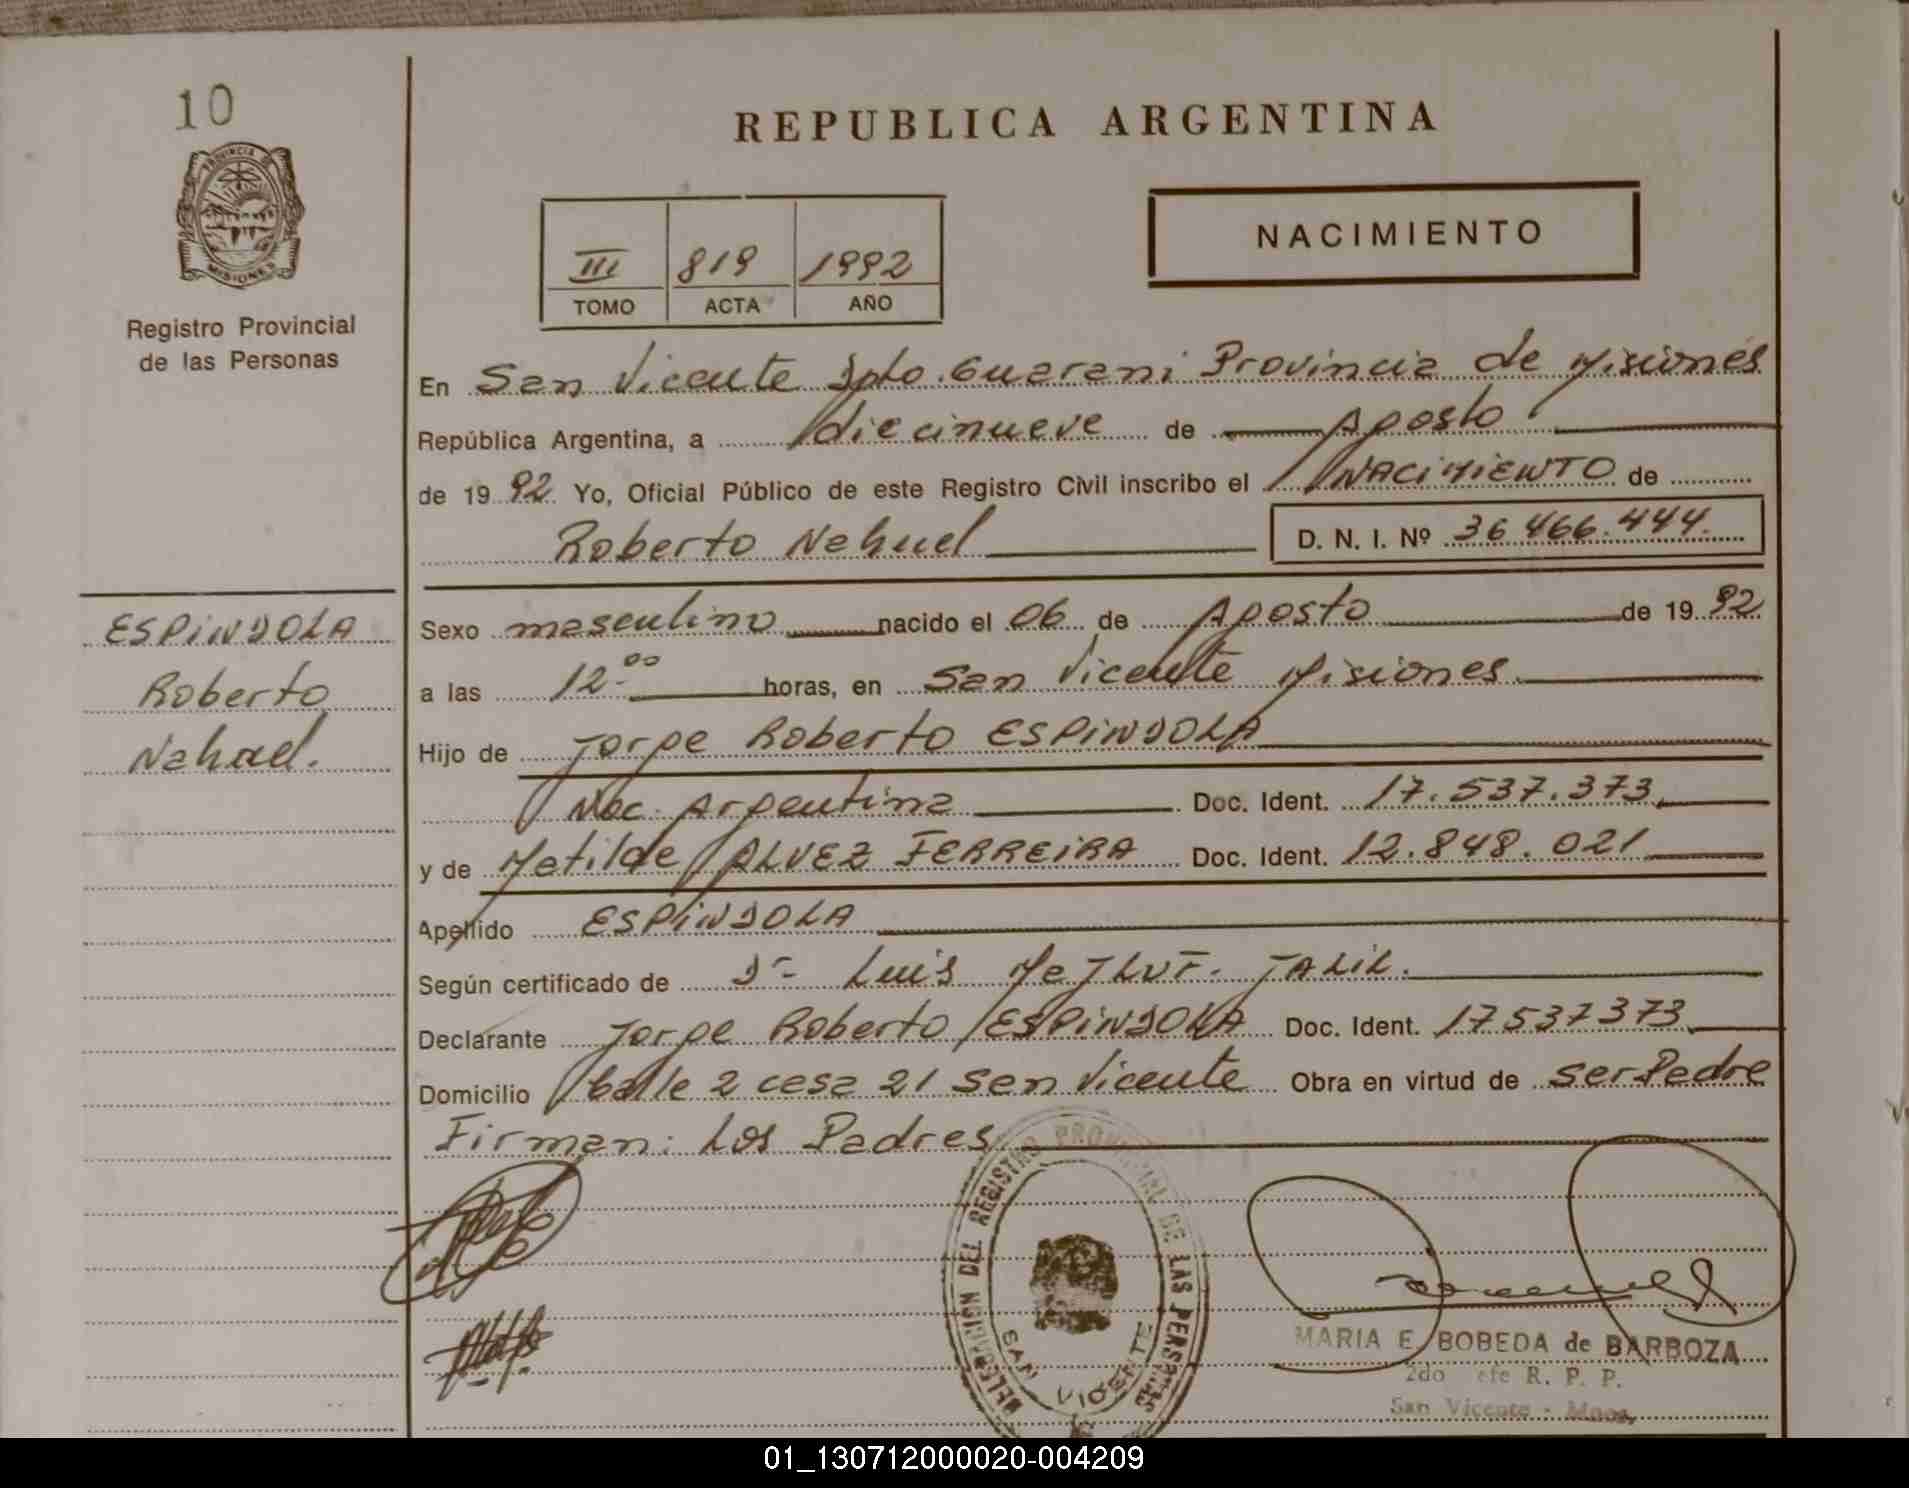 10
PROVINCIA DE
MISIONES
Registro Provincial
de las Personas
ESPINDOLA
Roberto
Nahuel.
REPUBLICA ARGENTINA
III 819 1992
TOMO ACTA AÑO
NACIMIENTO
En San Vicente Dpto. Guarani Provincia de Misiones
República Argentina, a diecinueve de Agosto
de 19 92 Yo, Oficial Público de este Registro Civil inscribo el NACIMIENTO de
Roberto Nahuel D. N. I. Nº 36 466.444.
Sexo masculino nacido el 06 de Agosto de 19 92
a las 12.00 horas, en San Vicente Misiones
Hijo de Jorge Roberto ESPINDOLA
Nac. Argentina Doc. Ident. 17.537.373
y de Matilde ALVEZ FERREIRA Doc. Ident. 12.848.021
Apellido ESPINDOLA
Según certificado de Dr Luis JALIL.
Declarante Jorge Roberto ESPINDOLA Doc. Ident. 17537373
Domicilio Calle 2 casa 21 San Vicente Obra en virtud de ser Padre
Firman: Los Padres
DELEGACION DEL REGISTRO PROVINCIAL DE LAS PERSONAS
SAN VICENTE
MARIA E. BOBEDA de BARBOZA
2do Jefe R. P. P.
San Vicente - Mnes.
01_130712000020-004209